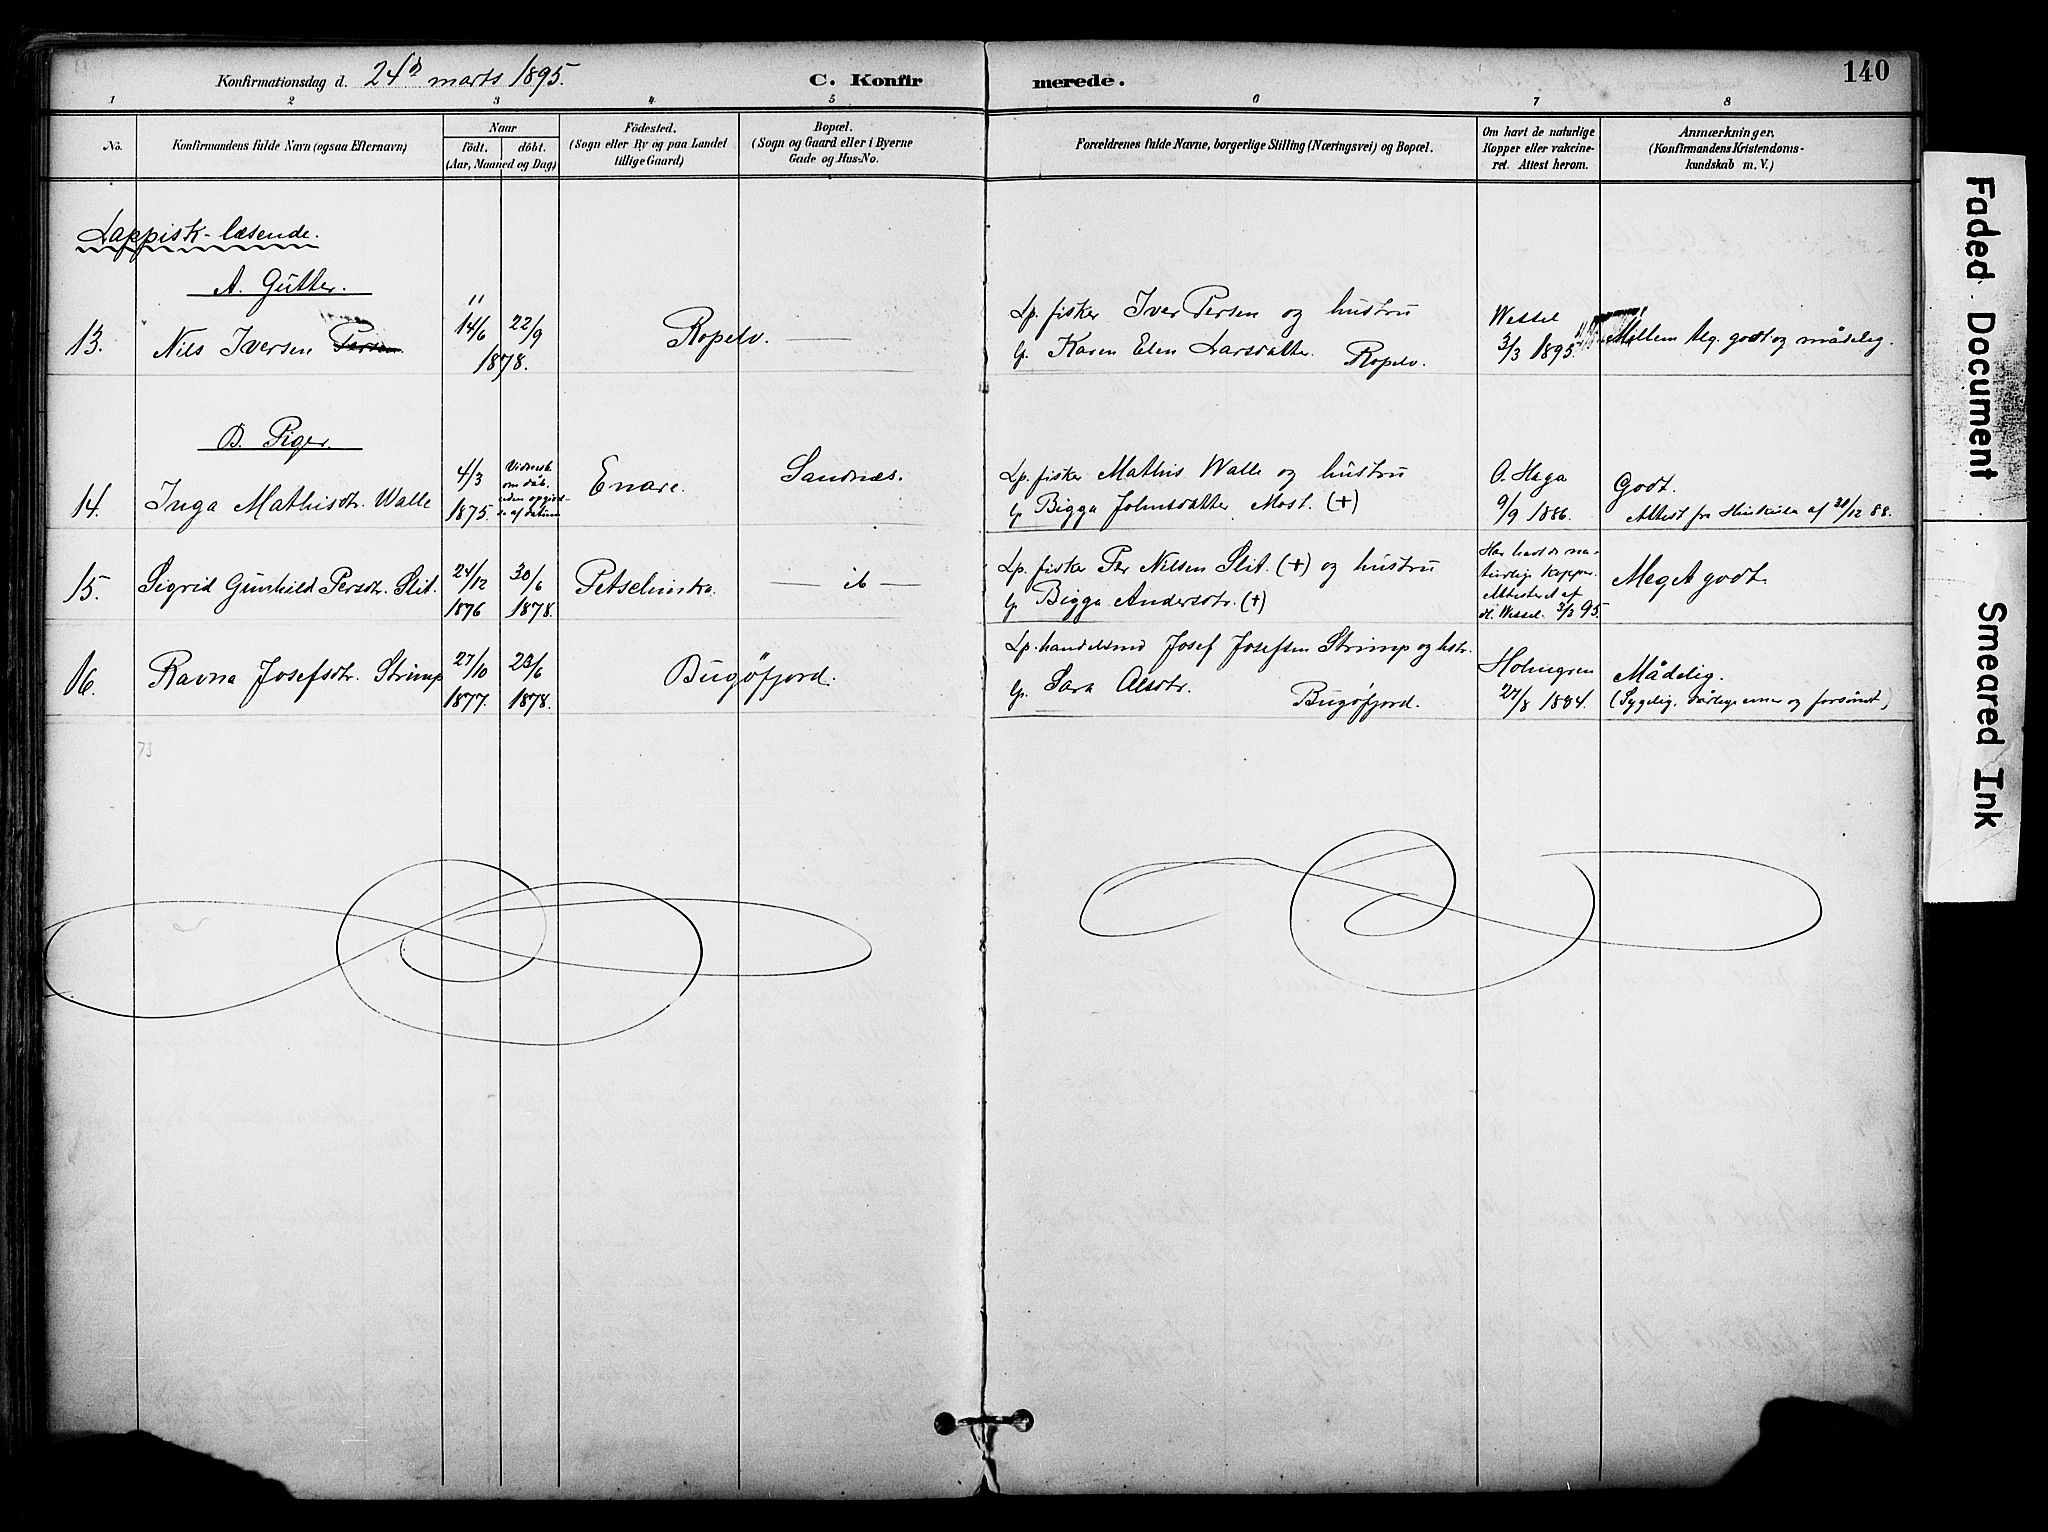 Konfirmationsdag d. 24d marts 1895.
C. Konfirmerede.
140
1 2 3 4 5 6 7 8
No.
Konfirmandens fulde Navn (ogsaa Efternavn)
Naar
födt. döbt.
(Aar, Maaned og Dag)
Födested.
(Sogn eller By og paa Landet
tillige Gaard)
Bopæl.
(Sogn og Gaard eller i Byerne
Gade og Hus-No.
Forældrenes fulde Navne, borgerlige Stilling (Næringsvei) og Bopæl.
Om havt de naturlige
Kopper eller vakcine-
ret. Attest herom.
Anmærkninger,
(Konfirmandens Kristendoms-
kundskab m. V.)
Lappisk-læsende.
A. Gutter.
13. Nils Iversen Persen
14/6 22/9
1878.
Ropelv.
Lp. fisker Iver Persen og hustru
lp. Karen Elen Larsdatter. Ropelv.
Wessel
3/3 1895.
Mellem Mg. godt og mådelig.
B. Piger.
14. Inga Mathisdtr. Walle
4/3
1875.
Vidnesb.
om dåb.
uden opgivel-
se af datum
Enare.
Sandnæs.
Lp. fisker Mathis Walle og hustru
lp Bigga Johnsdatter Most. (+)
O. Haga
9/9 1886.
Godt.
Attest fra af 20/12 88.
15. Sigrid Gunhild Persdtr. Slit.
24/12 30/6
1876 1878.
Petschinska.
— ib —
Lp. fisker Per Nilsen Slit. (+) og hustru
lp Bigga Andersdtr. (+)
Har havt de na-
turlige kopper.
Attesteret af
dr. Wessel. 3/3 95.
Meget godt.
16. Ravna Josefsdtr. Strimp
27/10 23/6
1877. 1878.
Bugöfjord.
Lp. handelsmd Josef Josefsen Strimp og hstr.
lp. Sara Olsdtr. Bugöfjord.
Holmgren
27/8 1884.
Mådelig.
(Sygelig, dårlige evner og forsömt)
73
Faded Document
Smeared Ink